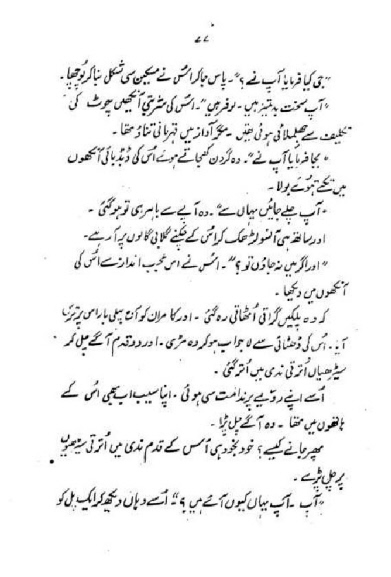 ۴۷
”جی کیا فرمایا آپ نے؟“۔ پاس جا کر اس نے مسکین سی شکل بنا کر پوچھا۔
”آپ سخت بدتمیز ہیں۔ لوفر ہیں“۔ اس کی شربتی آنکھیں چوٹ کی
تکلیف سے جھلملائی ہوئی تھیں۔ مگر آواز میں قہربانی تناؤ تھا۔
”بجا فرمایا آپ نے“۔ وہ گردن کھجاتے ہوئے اس کی ڈبڈبائی آنکھوں
میں تکتے ہوئے بولا۔
”آپ چلے جائیں یہاں سے“۔ وہ آپے سے باہر ہی تو ہو گئی۔
اور ساتھ ہی آنسو لڑھک کر اس کے چکنے گلابی گالوں پر آ رہے۔
”اور اگر میں نہ جاؤں تو؟“۔ اس نے اس عجیب انداز سے اس کی
آنکھوں میں دیکھا۔
کہ وہ پلکیں گراتی اٹھاتی رہ گئی۔ اور کامران کو آج پہلی بار اس پر ترس
آیا۔ اس کی ڈھٹائی سے لاجواب ہو کر وہ مڑی۔ اور دو قدم آگے چل کر
سیڑھیاں اترتی ندی میں اتر گئی۔
اسے اپنے رویے پر ندامت سی ہوئی۔ اپنا سیب اب بھی اس کے
ہاتھوں میں تھا۔ وہ آگے چل پڑا۔
پھر جانے کیسے؟ خود بخود ہی اس کے قدم ندی میں اترتی سیڑھیوں
پر چل پڑے۔
”آپ۔ آپ یہاں کیوں آئے ہیں؟“ اسے وہاں دیکھ کر ایک پل کو